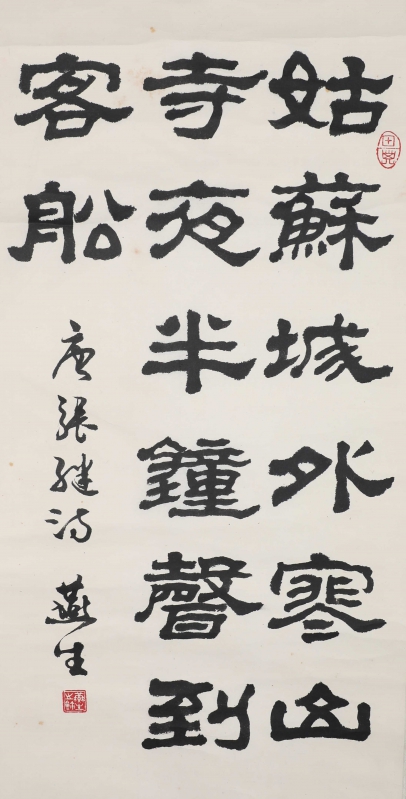 姑蘇城外寒山
寺夜半鐘聲到
客船
唐張継诗 燕生